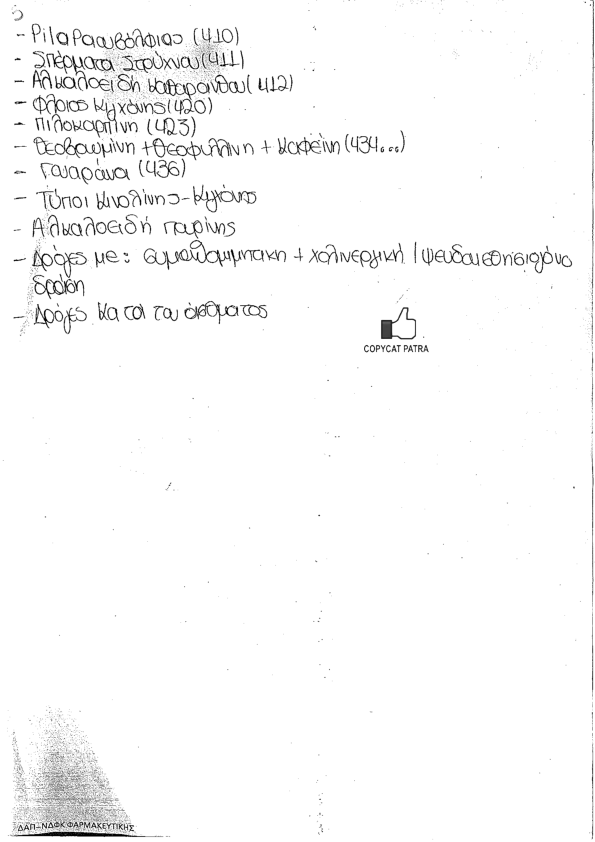 - Ρίζα Ραουβόλφιας (410)
- Σπέρματα Στρύχνου (411)
- Αλκαλοειδή καθαρανθου (412)
- Φλοιος κιγχόνης (420)
- Πιλοκαρπίνη (423)
- Θεοβρωμίνη + Θεοφυλλίνη + καφεΐνη (434...)
- Γουαράνα (436)
- Τύποι κινολίνης - κιγχόνης
- Αλκαλοειδή πουρίνης
- Δρόγες με: συμπαθομιμητικη + χολινεργική / ψευδαισθησιογόνο
δράση
- Δρόγες κατά του άσθματος
COPYCAT PATRA
ΔΑΠ-ΝΔΦΚ ΦΑΡΜΑΚΕΥΤΙΚΗΣ